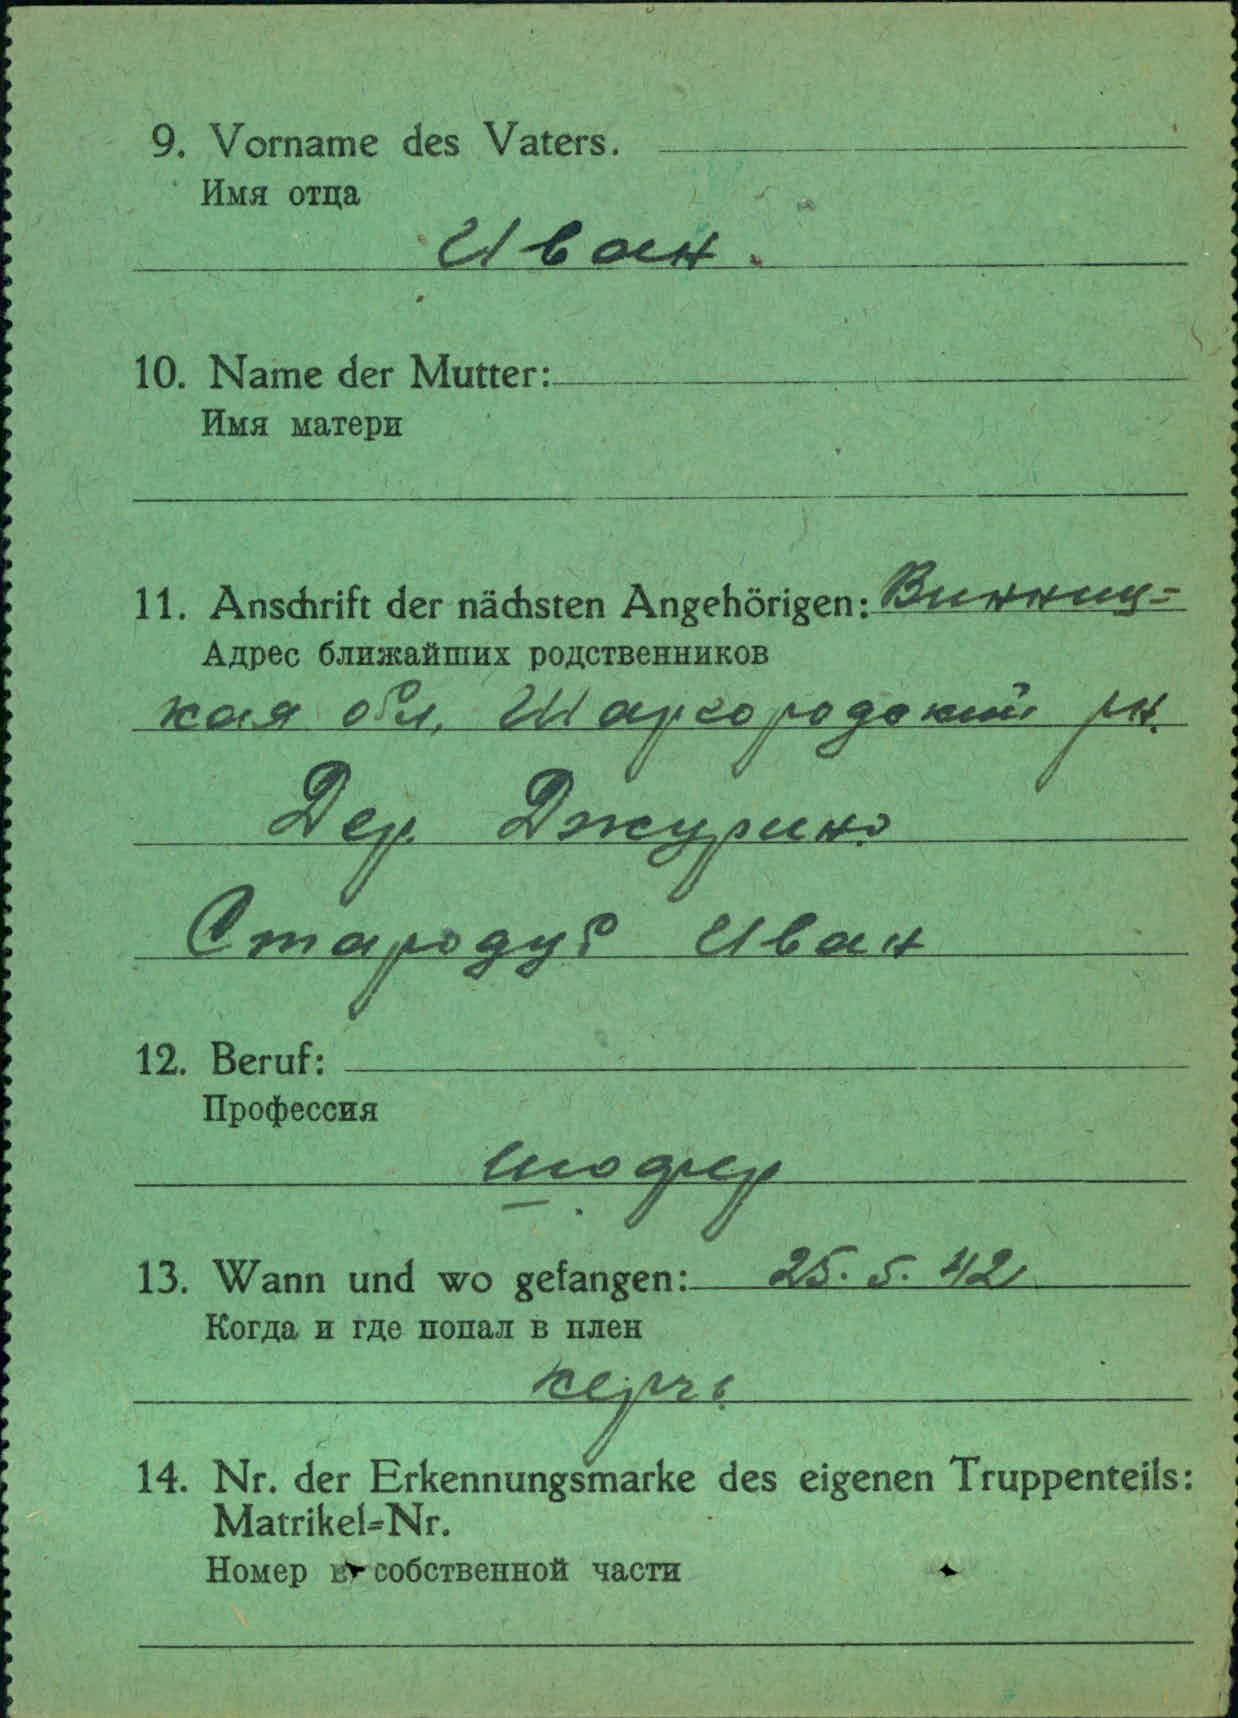 9. Vorname des Vaters.
Имя отца
Иван.
10. Name der Mutter:
Имя матери
11. Anschrift der nächsten Angehörigen: Винниц=
Адрес ближайших родственников
кая обл, Шаргородский рн.
Дер. Джурин
Стародуб Иван
12. Beruf:
Профессия
шофер
13. Wann und wo gefangen: 25. 5. 42
Когда и где попал в плен
керчь
14. Nr. der Erkennungsmarke des eigenen Truppenteils:
Matrikel=Nr.
Номер в собственной части